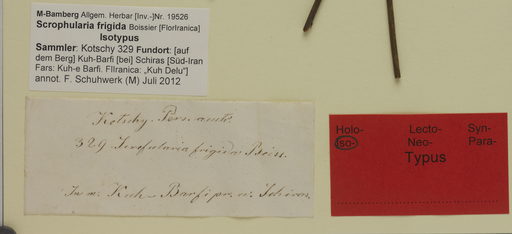 M-Bamberg Allgem. Herbar [Inv.-]Nr. 19526
Scrophularia frigida Boissier [FlorIranica]
Isotypus
Sammler: Kotschy 329 Fundort: [auf
dem Berg] Kuh-Barfi [bei] Schiras [Süd-Iran
Fars: Kuh-e Barfi. FlIranica: „Kuh Delu"]
annot. F. Schuhwerk (M) Juli 2012
Kotschy. Pers. austr.
329. Scrofularia frigida Boiss.
In m. Kuh-Barfi pr. u. Schiras.
Holo- Lecto- Syn-
Iso- Neo- Para-
Typus